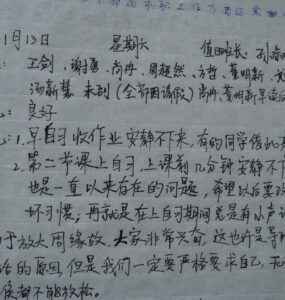 1月13日 星期六 值班班长:孙
:王剑、谢勇、尚冉、周超然、方哲、董明新、
汤新慧 未到(全部因请假)尚冉、董明新早读
:良好
:1.早自习收作业安静不下来,有的同学借此
2.第二节课上自习,上课前几分钟安静不下
也是一直以来存在的问题,希望以后要
坏习惯;再就是在上自习期间总是有小声
于放大周缘故,大家非常兴奋,这也许是导
的原因,但是我们一定要严格要求自己,无
候都不能放松。